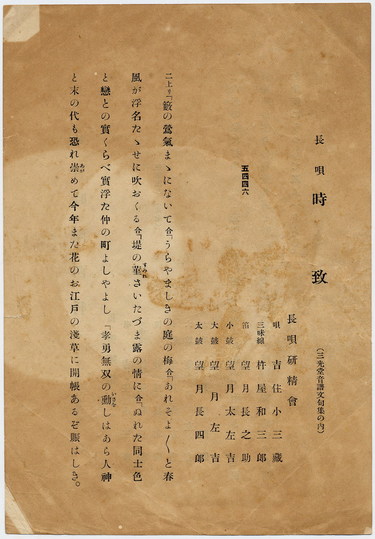 長唄 時致
(三光堂音譜文句集の內)
長唄研精會
唄 吉住小三藏
三味線 杵屋和三郎
笛 望月長之助
小鼓 望月太左吉
大鼓 望月左吉
太鼓 望月長四郎
五四四六
二上リ「籔の鶯氣まゝにないて合「うらやましきの庭の梅合「あれそよ〱と春
風が浮名たゝせに吹おくる合「堤の菫さいたづま露の情に合「ぬれた同士色
と戀との實くらべ實浮た仲の町よしやよし「孝勇無双の勳しはあら人神
と末の代も恐れ崇めて今年また花のお江戸の淺草に開帳あるぞ賑はしき。